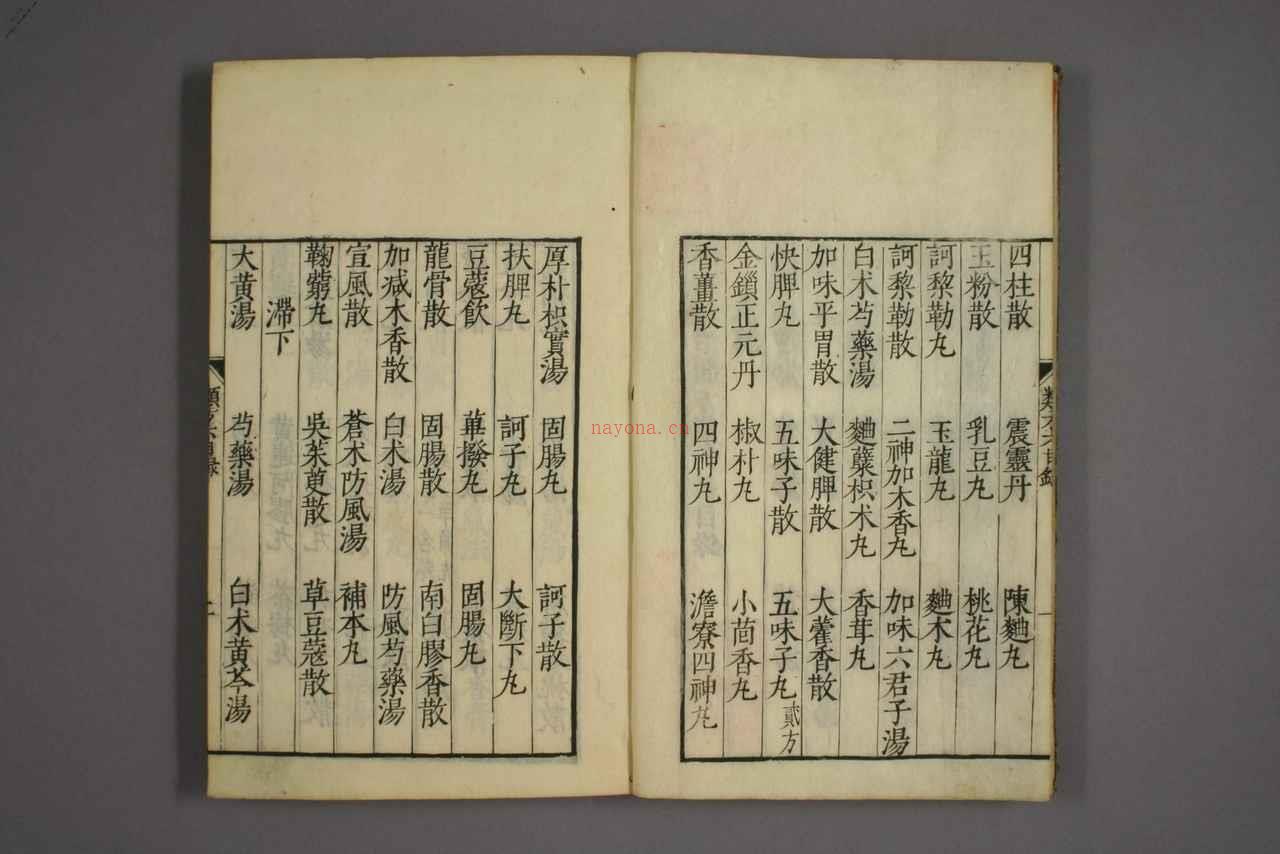 四柱散　震靈丹　陳麯丸
玉粉散　乳豆丸　桃花丸
訶黎勒丸　玉龍丸　麯朮丸
訶黎勒散　二神加木香丸　加味六君子湯
白朮芍藥湯　麯糵枳朮丸　香茸丸
加味平胃散　大健脾散　大藿香散
快脾丸　五味子散　五味子丸貳方
金鎖正元丹　椒朴丸　小茴香丸
香薑散　四神丸　澹寮四神丸
類方六目錄　一
厚朴枳實湯　固腸丸　訶子散
扶脾丸　訶子丸　大斷下丸
豆蔻飲　華撥丸　固腸丸
龍骨散　固腸散　南白膠香散
加減木香散　白朮湯　防風芍藥湯
宣風散　蒼朮防風湯　補本丸
鞠藭丸　吳茱萸散　草豆蔻散
滯下
大黃湯　芍藥湯　白朮黃芩湯
類方六目錄　二
nayona.cn